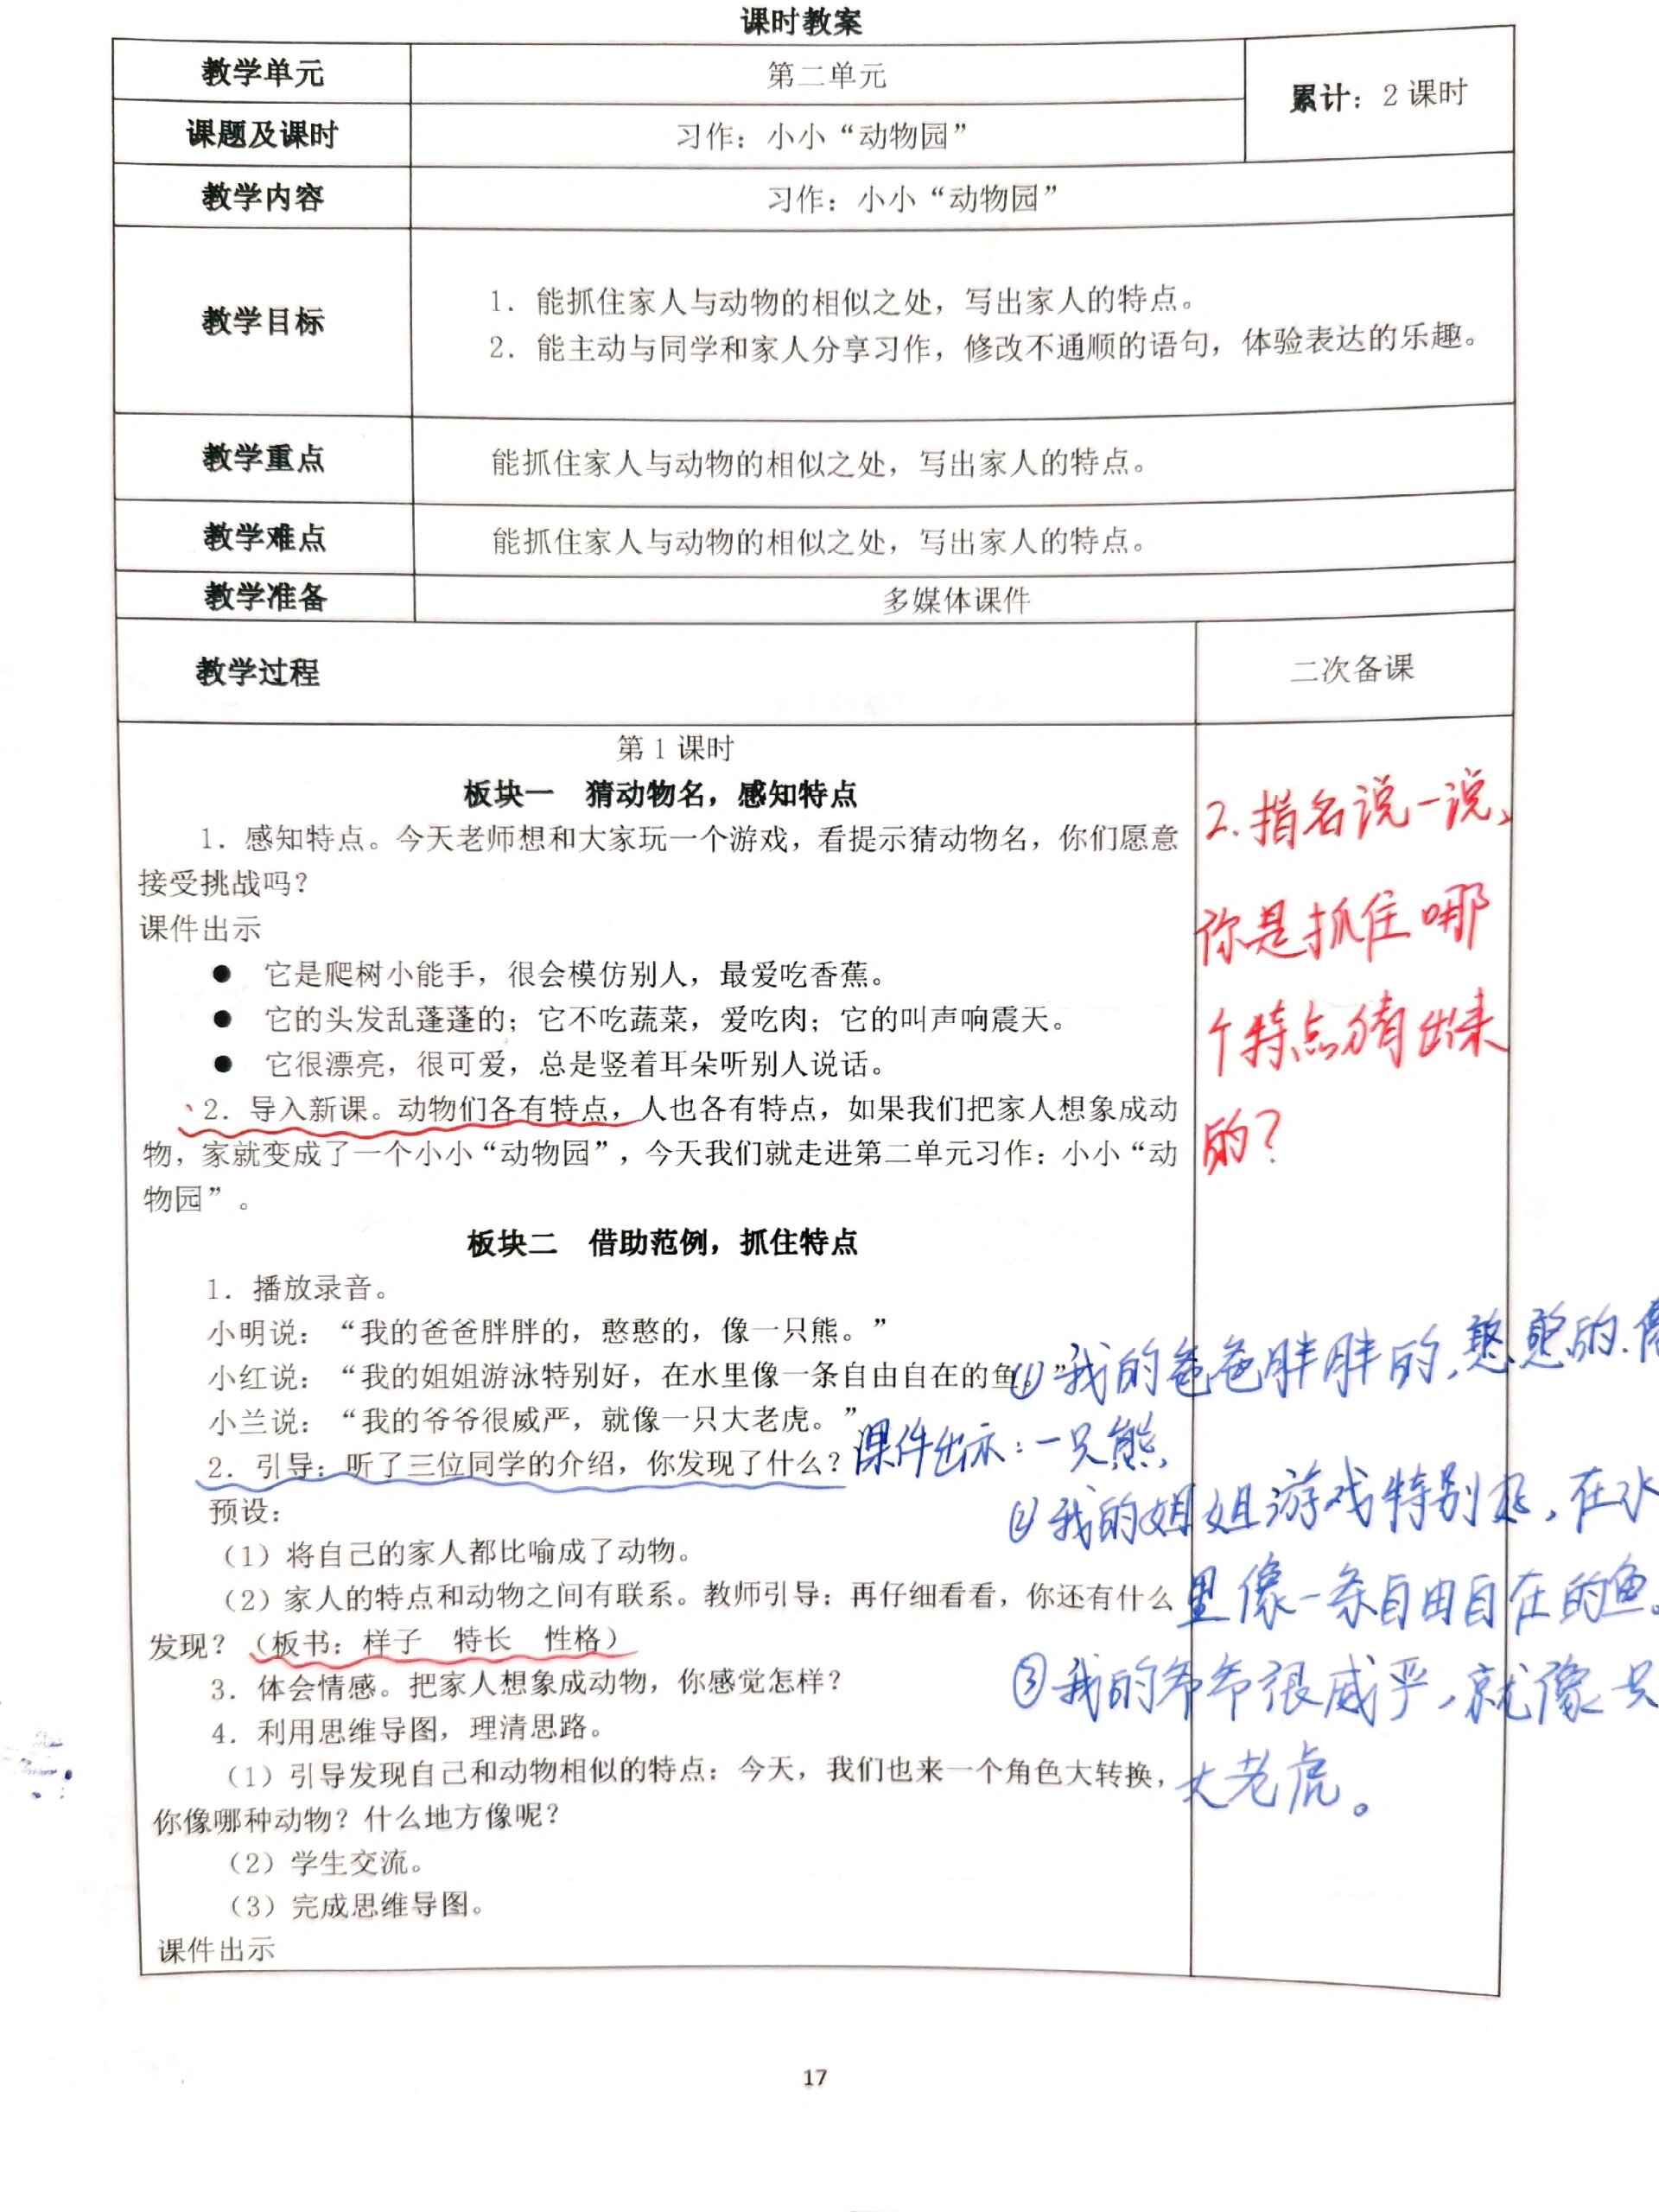 课时教案
教学单元
第二单元
累计：2 课时
课题及课时
习作：小小“动物园”
教学内容
习作：小小“动物园”
教学目标
1．能抓住家人与动物的相似之处，写出家人的特点。
2．能主动与同学和家人分享习作，修改不通顺的语句，体验表达的乐趣。
教学重点
能抓住家人与动物的相似之处，写出家人的特点。
教学难点
能抓住家人与动物的相似之处，写出家人的特点。
教学准备
多媒体课件
教学过程
二次备课
第 1 课时
板块一　猜动物名，感知特点
1．感知特点。今天老师想和大家玩一个游戏，看提示猜动物名，你们愿意
接受挑战吗？
课件出示
● 它是爬树小能手，很会模仿别人，最爱吃香蕉。
● 它的头发乱蓬蓬的；它不吃蔬菜，爱吃肉；它的叫声响震天。
● 它很漂亮，很可爱，总是竖着耳朵听别人说话。
、2．导入新课。动物们各有特点，人也各有特点，如果我们把家人想象成动
物，家就变成了一个小小“动物园”，今天我们就走进第二单元习作：小小“动
物园”。
板块二　借助范例，抓住特点
1．播放录音。
小明说：“我的爸爸胖胖的，憨憨的，像一只熊。”
小红说：“我的姐姐游泳特别好，在水里像一条自由自在的鱼。”
小兰说：“我的爷爷很威严，就像一只大老虎。”
2．引导：听了三位同学的介绍，你发现了什么？
预设：
（1）将自己的家人都比喻成了动物。
（2）家人的特点和动物之间有联系。教师引导：再仔细看看，你还有什么
发现？（板书：样子　特长　性格）
3．体会情感。把家人想象成动物，你感觉怎样？
4．利用思维导图，理清思路。
（1）引导发现自己和动物相似的特点：今天，我们也来一个角色大转换，
你像哪种动物？什么地方像呢？
（2）学生交流。
（3）完成思维导图。
课件出示
2.指名说一说，
你是抓住哪
个特点猜出来
的？
①我的爸爸胖胖的，憨憨的，像
课件出示：一只熊，
②我的姐姐游戏特别好，在水
里像一条自由自在的鱼。
③我的爷爷很威严，就像只
大老虎。
17